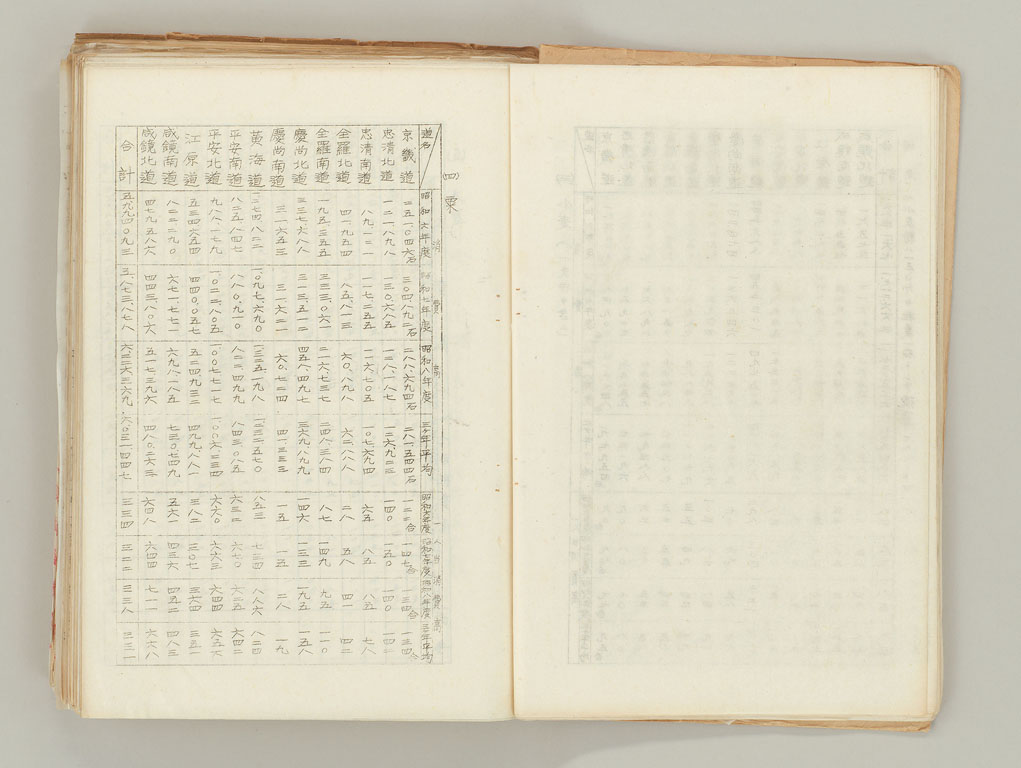 (四) 粟
消費高 一人当消費高
道名 昭和六年度 昭和七年度 昭和八年度 三ケ年平均 昭和六年度 昭和七年度 昭和八年度 三ケ年平均
京畿道 二五一、〇四六石 三〇四、八九二石 二八八、六九四石 二八一、五四四石 一二二合 一四七合 一三四合 一三四合
忠清北道 一二一、八九八 一三〇、六八五 一二八、一八七 一二六、九二三 一四〇 一五〇 一四〇 一四二
忠清南道 八九、一二一 一一七、二五五 一一六、七〇五 一〇七、六九四 六五 八五 八五 七八
全羅北道 四一、九五四 八五、八一三 六〇、八九八 六二、八八八 二八 五八 四一 四二
全羅南道 一九五、三五五 三三三、〇六一 二一六、七三七 二四八、三八四 八七 一四九 九五 一一〇
慶尚北道 三三七、六八八 三一三、五一二 四五八、四九七 三六九、八九九 一四六 一三三 一九五 一五八
慶尚南道 三一、六五三 三一、六二一 六〇、七二四 四一、三三三 一五 一五 二八 一九
黃海道 一、二七四、八二二 一、〇九七、六九〇 一、三三五、一九八 一、二三二、五七〇 八五三 七三四 八八六 八二四
平安南道 八二五、八四七 八八〇、九一〇 八二二、四九九 八四三、〇八五 六三二 六七〇 六二五 六四二
平安北道 九八八、一七九 一、〇二二、八〇五 一、〇〇七、七一七 一、〇〇六、二三四 六六〇 六六三 六四四 六五六
江原道 五三四、六五四 四四〇、〇五七 五二四、九三二 四九九、八八一 三八二 三〇七 三六四 三五一
咸鏡南道 八二二、二九〇 六七一、七七一 六九八、一八五 七三〇、七四九 五六一 四三六 四五二 四八三
咸鏡北道 四七九、五八六 四四三、八〇六 五一七、三九六 四八〇、二六三 六四八 六四四 七一一 六六八
合計 五、九九四、〇九三 五、八七三、八七八 六、二三六、三六九 六、〇三一、四四七 三三四 三二二 三三八 三三一